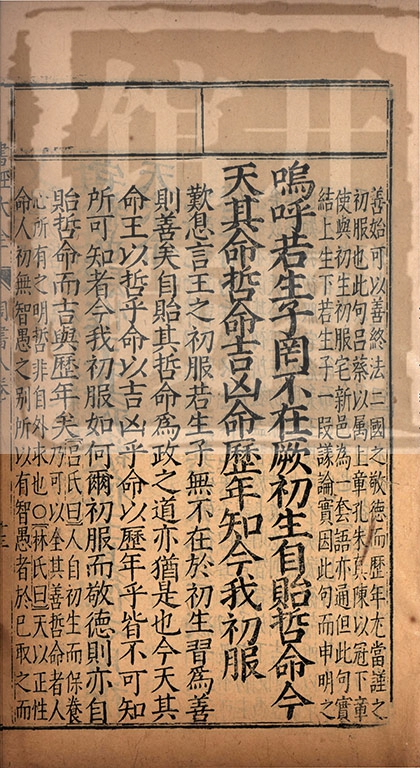 善始可以善終法二國之敬德而歷年尤當謹之
初服也此句呂蔡以屬上章孔朱真陳以冠下董
使與初生初服宅新邑為一套語亦通但此句實
結上生下若生子一段議論實因此句而申明之
嗚呼若生子罔不在厥初生自貽哲命今
天其命哲命吉凶命歷年知今我初服
歎息言王之初服若生子無不在於初生習爲善
則善矣自貽其哲命爲政之道亦猶是也今天其
命王以哲乎命以吉凶乎命以歷年乎皆不可知
所可知者今我初服如何爾初服而敬德則亦自
貽哲命而吉與歷年矣呂氏曰人自初生而保養
乃可以全其善哲命者人
心所有之明哲非自外求也○林氏曰天以正性
命人初無智愚之別所以有智愚者於已取之而
書經大全 周書